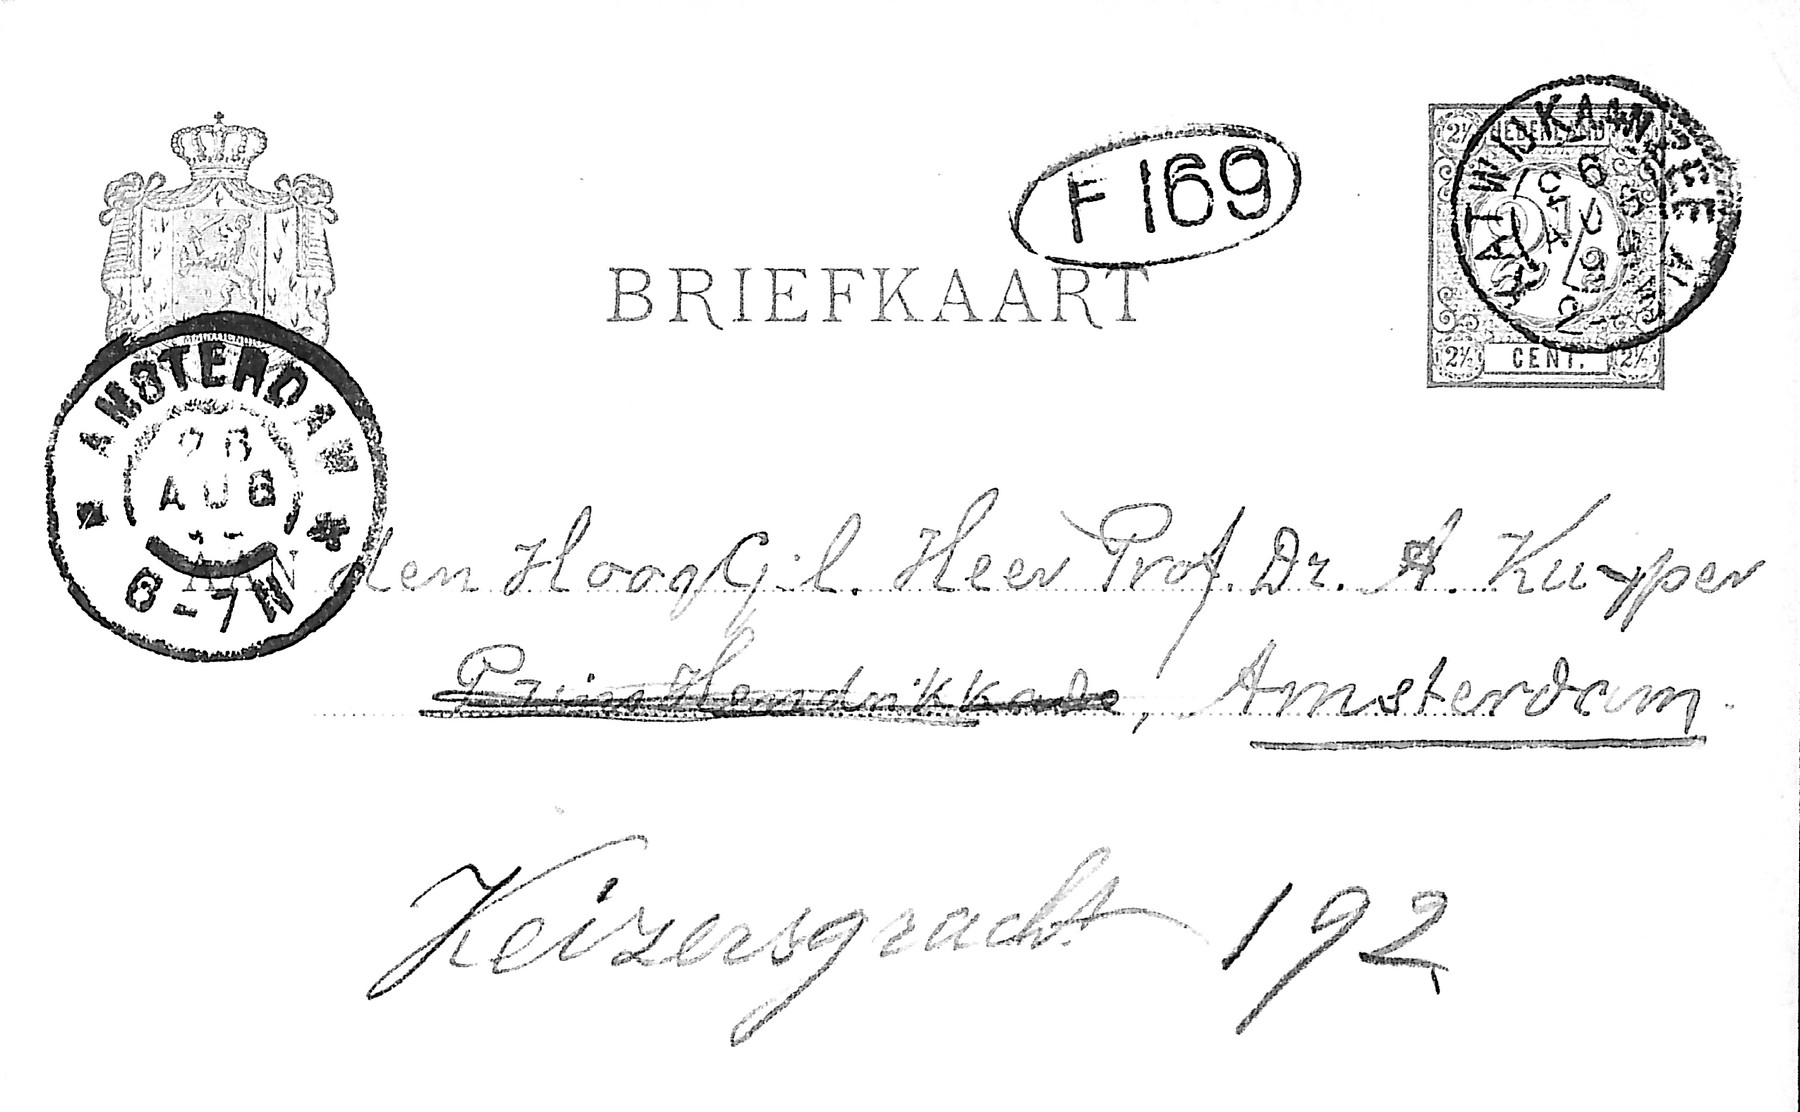 F 169
BRIEFKAART
2½ NEDERLAND
CENT.
2½ 2½
KATWIJK AAN ZEE
AMSTERDAM
AUG
6-7 N
AAN den HoogG.l. Heer Prof. Dr. A. Kuyper
Prins Hendrikkade, Amsterdam.
Keizersgracht 192